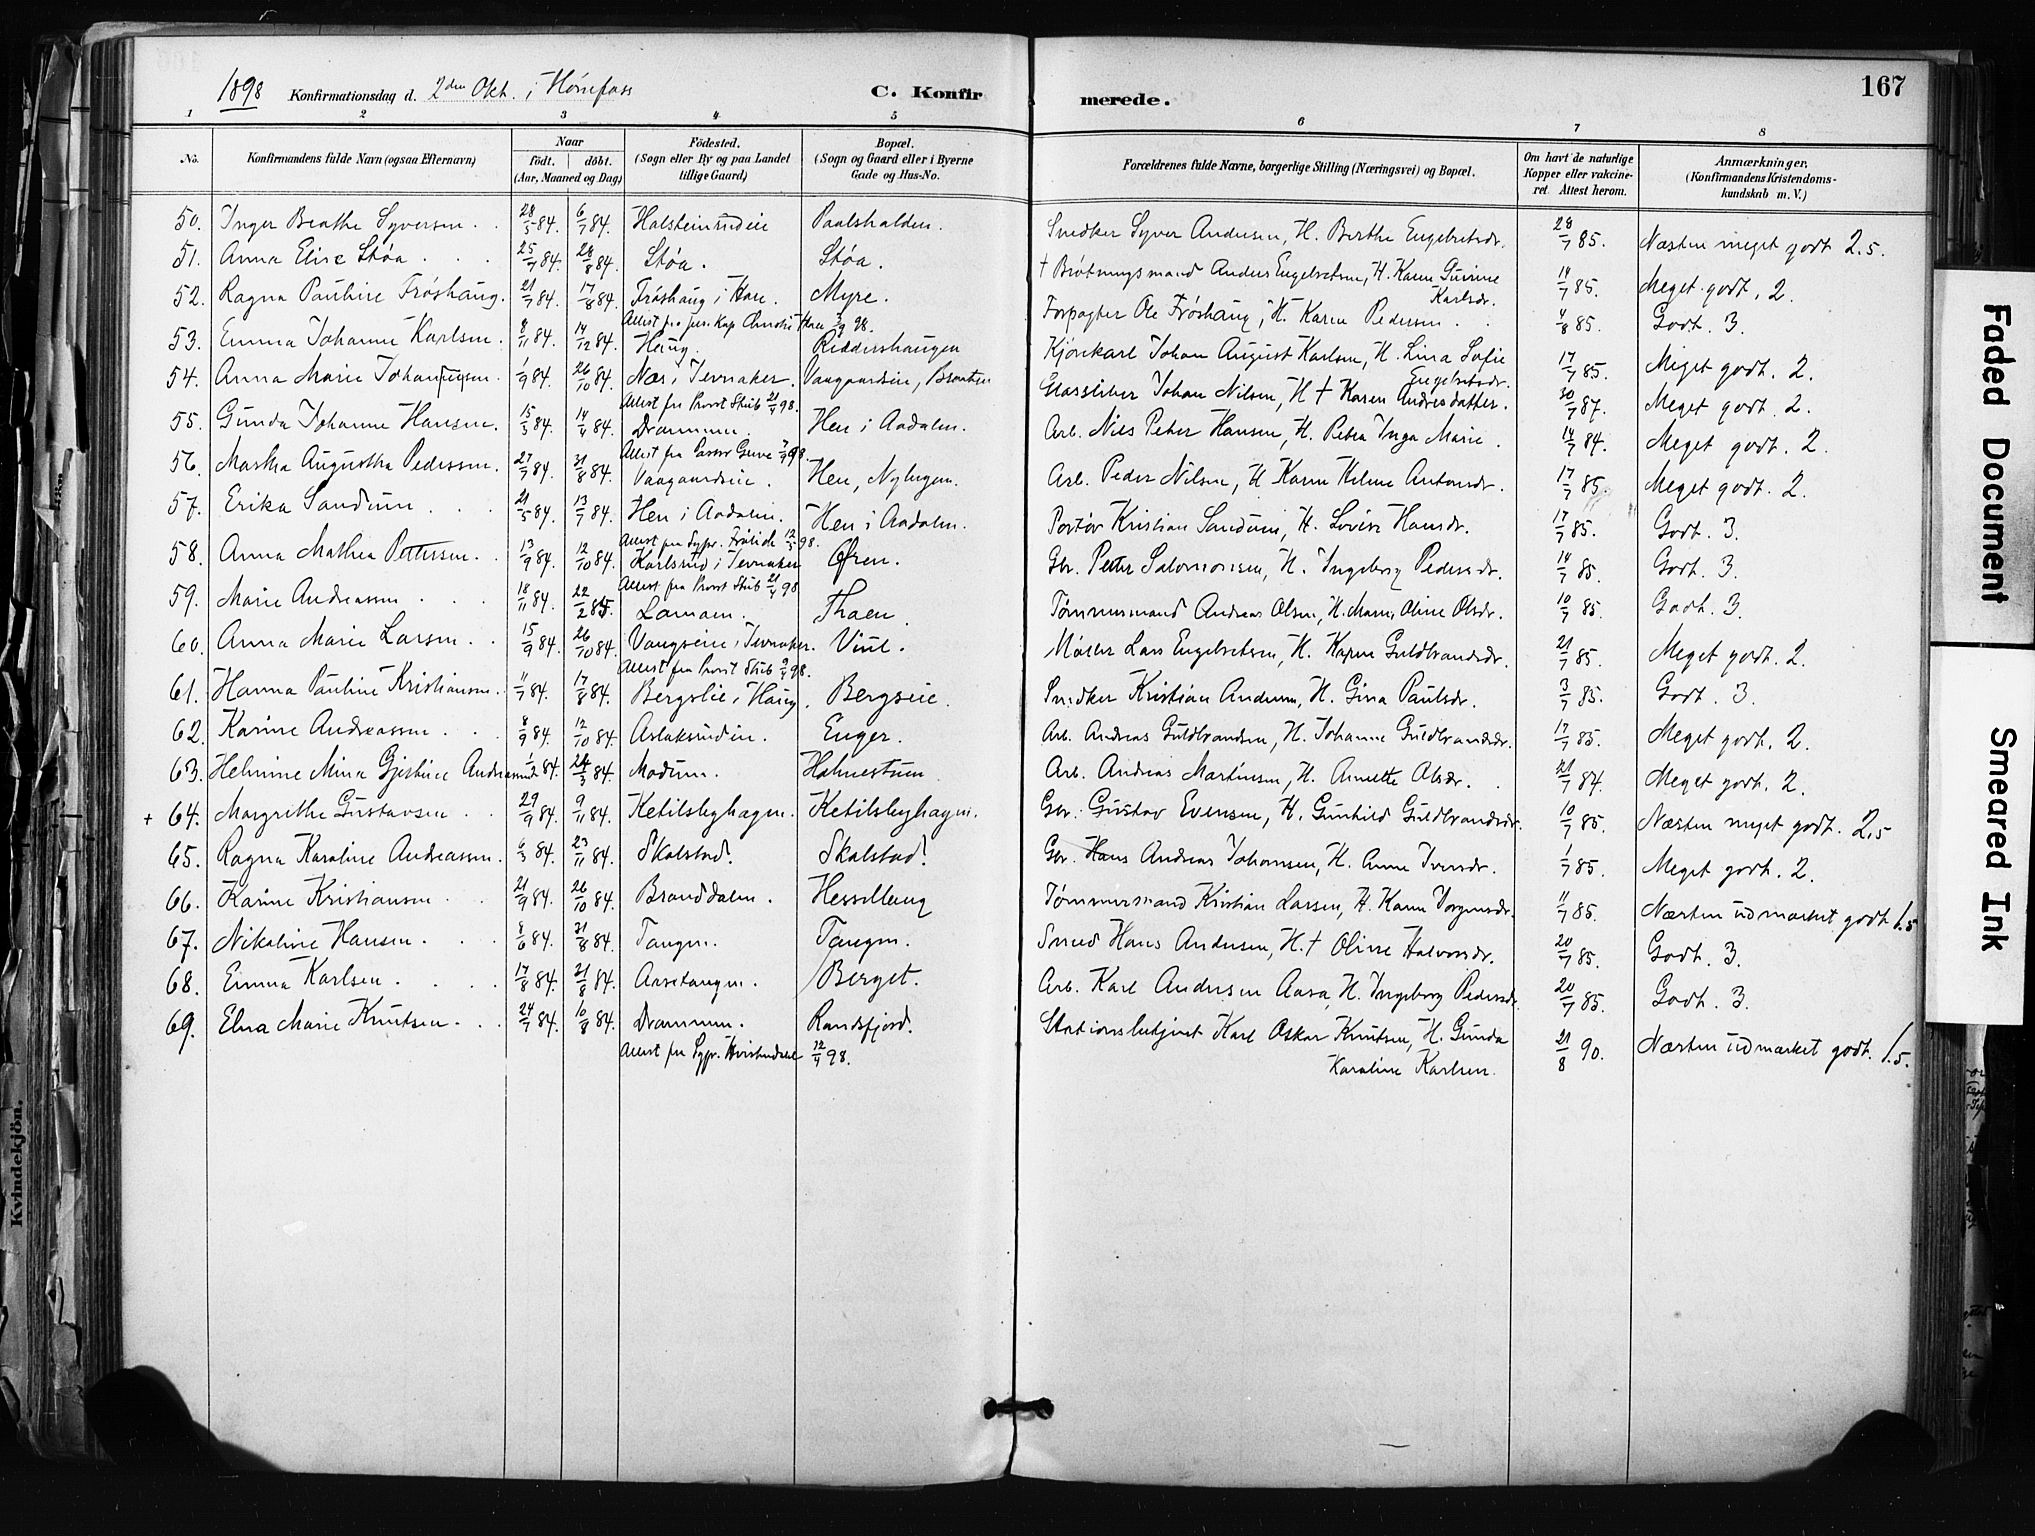 167
1898 Konfirmationsdag d. 2den Okt. i Hønefoss C. Konfirmerede.
1 2 3 4 5 6 7 8
No. Konfirmandens fulde Navn (ogsaa Efternavn) Naar født. døbt. (Aar, Maaned og Dag) Födested. (Sogn eller By og paa Landet tillige Gaard) Bopæl. (Sogn og Gaard eller i Byerne Gade og Hus-No. Forældrenes fulde Navne, borgerlige Stilling (Næringsvei) og Bopæl. Om havt de naturlige Kopper eller vakcineret. Attest herom. Anmærkninger. (Konfirmandens Kristendomskundskab m. V.)
50. Inger Beathe Syversen 28/5 84. 6/7 84. Halsteinrudeie Paalshalden. Snedker Syver Andersen, H. Berthe Engebretsdr. 28/7 85. Næsten meget godt 2.5.
51. Anna Elise Støa 25/7 84. 28/8 84. Støa. Støa. † Brøtningsmand Anders Engebretsen, H. Karen Gurine Karlsdr. 14/7 85. Meget godt. 2.
52. Ragna Pauline Frøshaug. 21/7 84. 17/8 84. Frøshaug i Hole. Myre. Forpagter Ole Frøshaug, H. Karen Pedersen 4/8 85. Godt. 3.
53. Emma Johanne Karlsen. 8/11 84. 14/12 84. Haug. Riddershaugen Kjørekarl Johan August Karlsen, H. Lina Sofie Engebretsdr. 17/7 85. Meget godt. 2.
54. Anna Marie Johannesen. 1/9 84. 26/10 84. Nær i Jevnaker. Vaagaardseie, Glassliber Johan Nilsen, H † Karen Andresdatter. 30/7 87. Meget godt. 2.
Attest fra Provst Stub 21/4 98.
55. Gunda Johanne Hansen. 15/3 84. 14/4 84. Drammen. Hen i Aadalen. Arb. Niels Peter Hansen, H. Petra Inga Marie. 14/7 84. Meget godt. 2.
56. Martha Augustha Pedersen. 27/7 84. 31/8 84. Vaagaardseie. Hen, Nyhagen. Arb. Peder Nilsen, H. Karen Helene Antonsdr. 17/7 85. Meget godt. 2.
57. Erika Sandum 21/5 84. 13/7 84. Hen i Aadalen. Hen i Aadalen. Kristian Sandum, H. Lovise Hansdr. 17/7 85. Godt. 3.
58. Anna Mathea Pettersen. 13/9 84. 12/10 84. Karlsrud i Jevnaker Øren. Gbr. Petter Salomonsen, H. Ingeborg Pedersdr. 14/7 85. Godt. 3.
Attest fra Provst Stub 21/4 98
59. Marie Andreassen 18/11 84. 22/2 85. Lamoen. Thoen. Tømmermand Andreas Olsen, H. Maren Oline Olsdr. 10/7 85. Godt. 3.
60. Anna Marie Larsen. 15/9 84. 26/10 84. Vangseie i Jevnaker. Viul. Møller Lars Engebretsen, H. Karen Guldbrandsdr. 21/7 85. Meget godt. 2.
61. Hanna Pauline Kristiansen. 11/7 84. 17/8 84. Bergslie i Haug. Bergseie. Snedker Kristian Andersen, H. Gina Paulsdr. 3/7 85. Godt. 3
62. Karine Andreassen 8/9 84. 12/10 84. Aslaksrudeie. Enger. Arb. Andreas Guldbrandsen, H. Johanne Guldbrandsdr. 17/7 85. Meget godt. 2.
63. Helmine Mina Gjestine Andreasen 1/2 84. 24/3 84. Modum. Holmestum Arb. Andreas Martinsen, H. Annette Olsdr. 21/7 84. Meget godt. 2.
+ 64. Margrethe Gustavsen 29/9 84. 9/11 84. Ketilsbyhagen. Ketilsbyhagen. Gbr. Gustav Evensen, H. Gunhild Guldbrandsdr. 10/7 85. Næsten meget godt. 2.5
65. Ragna Karoline Andreassen. 6/3 84. 23/11 84. Skolstad. Skolstad. Gbr. Hans Andreas Johansen, H. Anne Iversdr. 1/7 85. Meget godt. 2.
66. Karine Kristiansen 21/9 84. 26/10 84. Branddalen. Tømmermand Kristian Larsen, H. Karen Jørgensdr. 11/7 85. Næsten udmærket godt 1.5
67. Nikoline Hansen. 8/6 84. 31/8 84. Tangen. Tangen. Smed Hans Andersen, H. † Oline Halvorsdr. 20/7 85. Godt. 3.
68. Emma Karlsen 17/8 84. 21/8 84. Aasetangen. Berget. Arb. Karl Andersen Aasa, H. Ingeborg Pedersdr. 20/7 85. Godt. 3.
69. Elna Marie Knutsen. 24/7 84. 10/8 84. Drammen. Randsfjord. Stationsbetjent Karl Oskar Knutsen, H. Gunda Karoline Karlsen. 21/8 90. Næsten udmærket godt. 1.5.
12/4 98.
Kvindekjön.
Faded Document
Smeared Ink